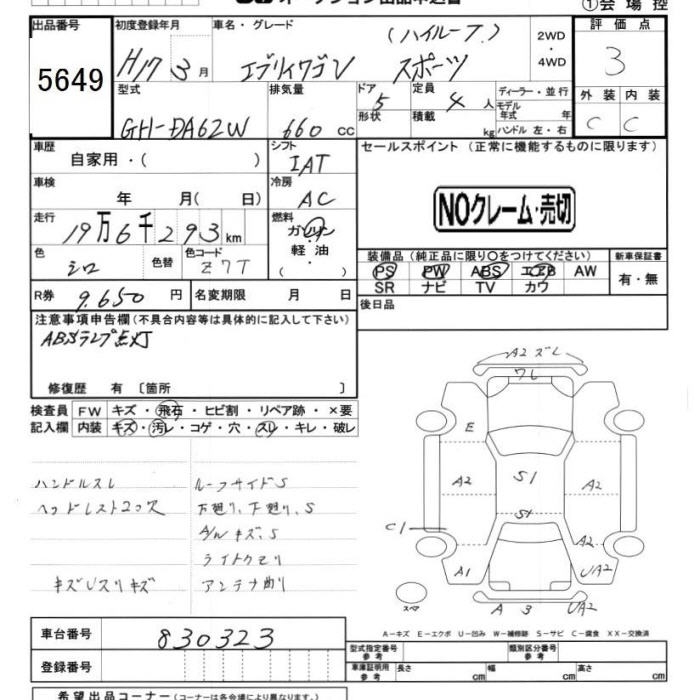 ①会場控
出品番号
5649
初度登録年月
H17 3月
車名・グレード
(ハイルーフ.)
エブリイワゴン スポーツ
2WD
・
4WD
評価点
3
外装 内装
C C
型式
GH-DA62W
排気量
660 cc
ドア 5
形状
定員 4 人
積載 kg
ディーラー・並行
モデル年式 年
ハンドル 左・右
車歴
自家用・( )
シフト
IAT
セールスポイント(正常に機能するものに限ります)
NOクレーム・売切
車検
年 月( 日)
冷房
AC
走行
19万6千293km
燃料
ガソリン
軽油
・
( )
色
シロ
色替
色コード
Z7T
装備品(純正品に限り○をつけてください)
PS PW ABS エアB AW
SR ナビ TV カワ
新車保証書
有・無
R券 9.650円
名変期限 月 日
後日品
注意事項申告欄(不具合内容等は具体的に記入して下さい)
ABSランプ点灯
修復歴 有〔箇所 〕
検査員
記入欄
FW キズ・飛石・ヒビ割・リペア跡・×要
内装 キズ・汚レ・コゲ・穴・スレ・キレ・破レ
ハンドルスレ
ヘッドレスト2コ欠
キズUスリキズ
ルーフサイドS
下廻り、下廻り、S
A/WキズS
ライトクモリ
アンテナ曲り
A2ズレ
ワレ
E
A2
S1
A2
S1
C1
A2
A1
UA2
スペア
A 3 UA2
A-キズ E-エクボ U-凹み W-補修跡 S-サビ C-腐食 XX-交換済
車台番号
830323
登録番号
型式指定番号
参考
類別区分番号
参考
車庫証明用
参考
長さ cm
幅 cm
高さ cm
希望出品コーナー(コーナーは各会場により異なります)